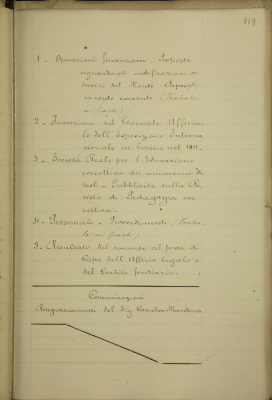 219
1 - Operazioni finanziarie. Proposte
riguardanti modificazioni
servizi del Monte. Depositi
in conto corrente (Verbale
a parte)
2 - Inserzioni sul Giornale Ufficia-
le dell'Esposizione Interna-
zionale in Torino nel 1911.
3 - Società Reale per l'Educazione
correttiva dei minorenni
- Pubblicità sulla Ri-
vista di Pedagogia cor-
rettiva.
4 - Personale - Provvedimenti (Verba-
le a parte)
5 - Risultato del concorso al posto di
Capo dell'Ufficio legale e
del Credito fondiario.
Comunicazioni
Ringraziamenti del Sig.